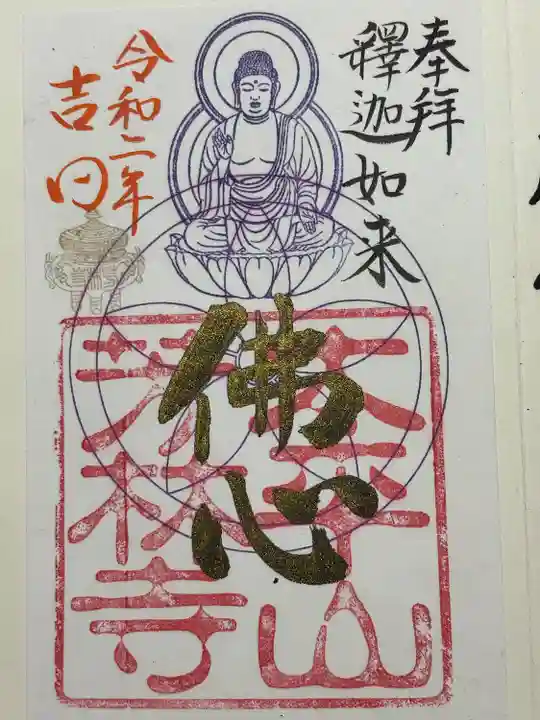 奉拜
釋迦如来
令和二年
吉日
佛心
太平山
芳林寺